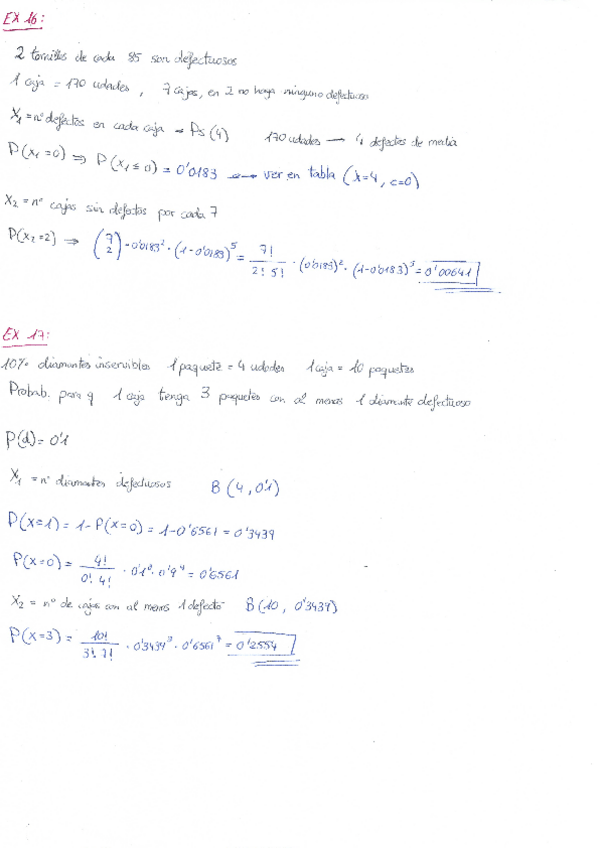 EX 16:
2 tornillos de cada 85 son defectuosos
1 caja = 170 udades , 7 cajas, en 2 no haya ninguno defectuoso
X₁ = nº defectos en cada caja → Ps (4) 170 udades → 4 defectos de media
P(x₁=0) ⇒ P(x₁≤0) = 0'0183 ← ver en tabla (λ=4, c=0)
X₂ = nº cajas sin defectos por cada 7
P(x₂=2) ⇒ (7 2) · 0'0183² · (1-0'0183)⁵ = 7! / 2! 5! · (0'0183)² · (1-0'0183)⁵ = 0'00641
EX 17:
10% diamantes inservibles 1 paquete = 4 udades 1 caja = 10 paquetes
Probab. para q 1 caja tenga 3 paquetes con al menos 1 diamante defectuoso
P(d) = 0'1
X₁ = nº diamantes defectuosos B (4, 0'1)
P(x=1) = 1 - P(x=0) = 1 - 0'6561 = 0'3439
P(x=0) = 4! / 0! 4! · 0'1⁰ · 0'9⁴ = 0'6561
X₂ = nº de cajas con al menos 1 defecto B (10, 0'3439)
P(x=3) = 10! / 3! 7! · 0'3439³ · 0'6561⁷ = 0'2554